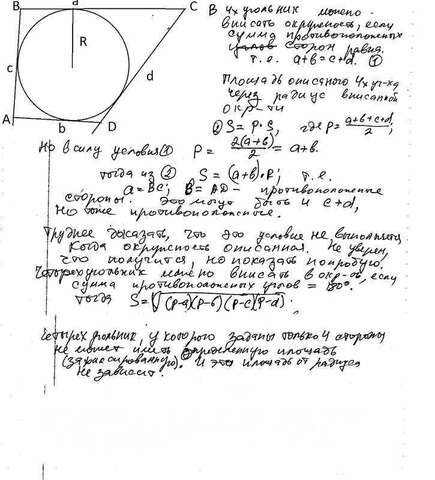 B a C
R
c d
A b D
В 4х угольник можно
вписать окружность, если
сумма противоположных
углов сторон равна.
т.е. a+b=c+d. ①
Площадь описанного 4х уг-ка
через радиус вписанной
окр-ти
② S = P·S, где P = a+b+c+d / 2;
Но в силу условия ① P = 2(a+b) / 2 = a+b.
тогда из ② S = (a+b)·R; т.е.
a = BC; B = AD – противоположные
стороны. Это могут быть и c+d,
но тоже противоположные.
Труднее доказать, что это условие не выполняется,
когда окружность описанная. Не уверен,
что получится, но показать попробую.
Четырехугольник можно вписать в окр-ть, если
сумма противоположных углов = 180°.
тогда S = √(p-a)(p-b)(p-c)(p-d).
Четырех угольник, у которого заданы только 4 стороны
не может иметь определенную площадь
(зафиксированную). И эта площадь от радиуса
не зависит.